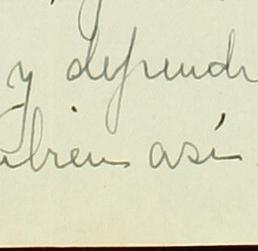 y depend
bien así